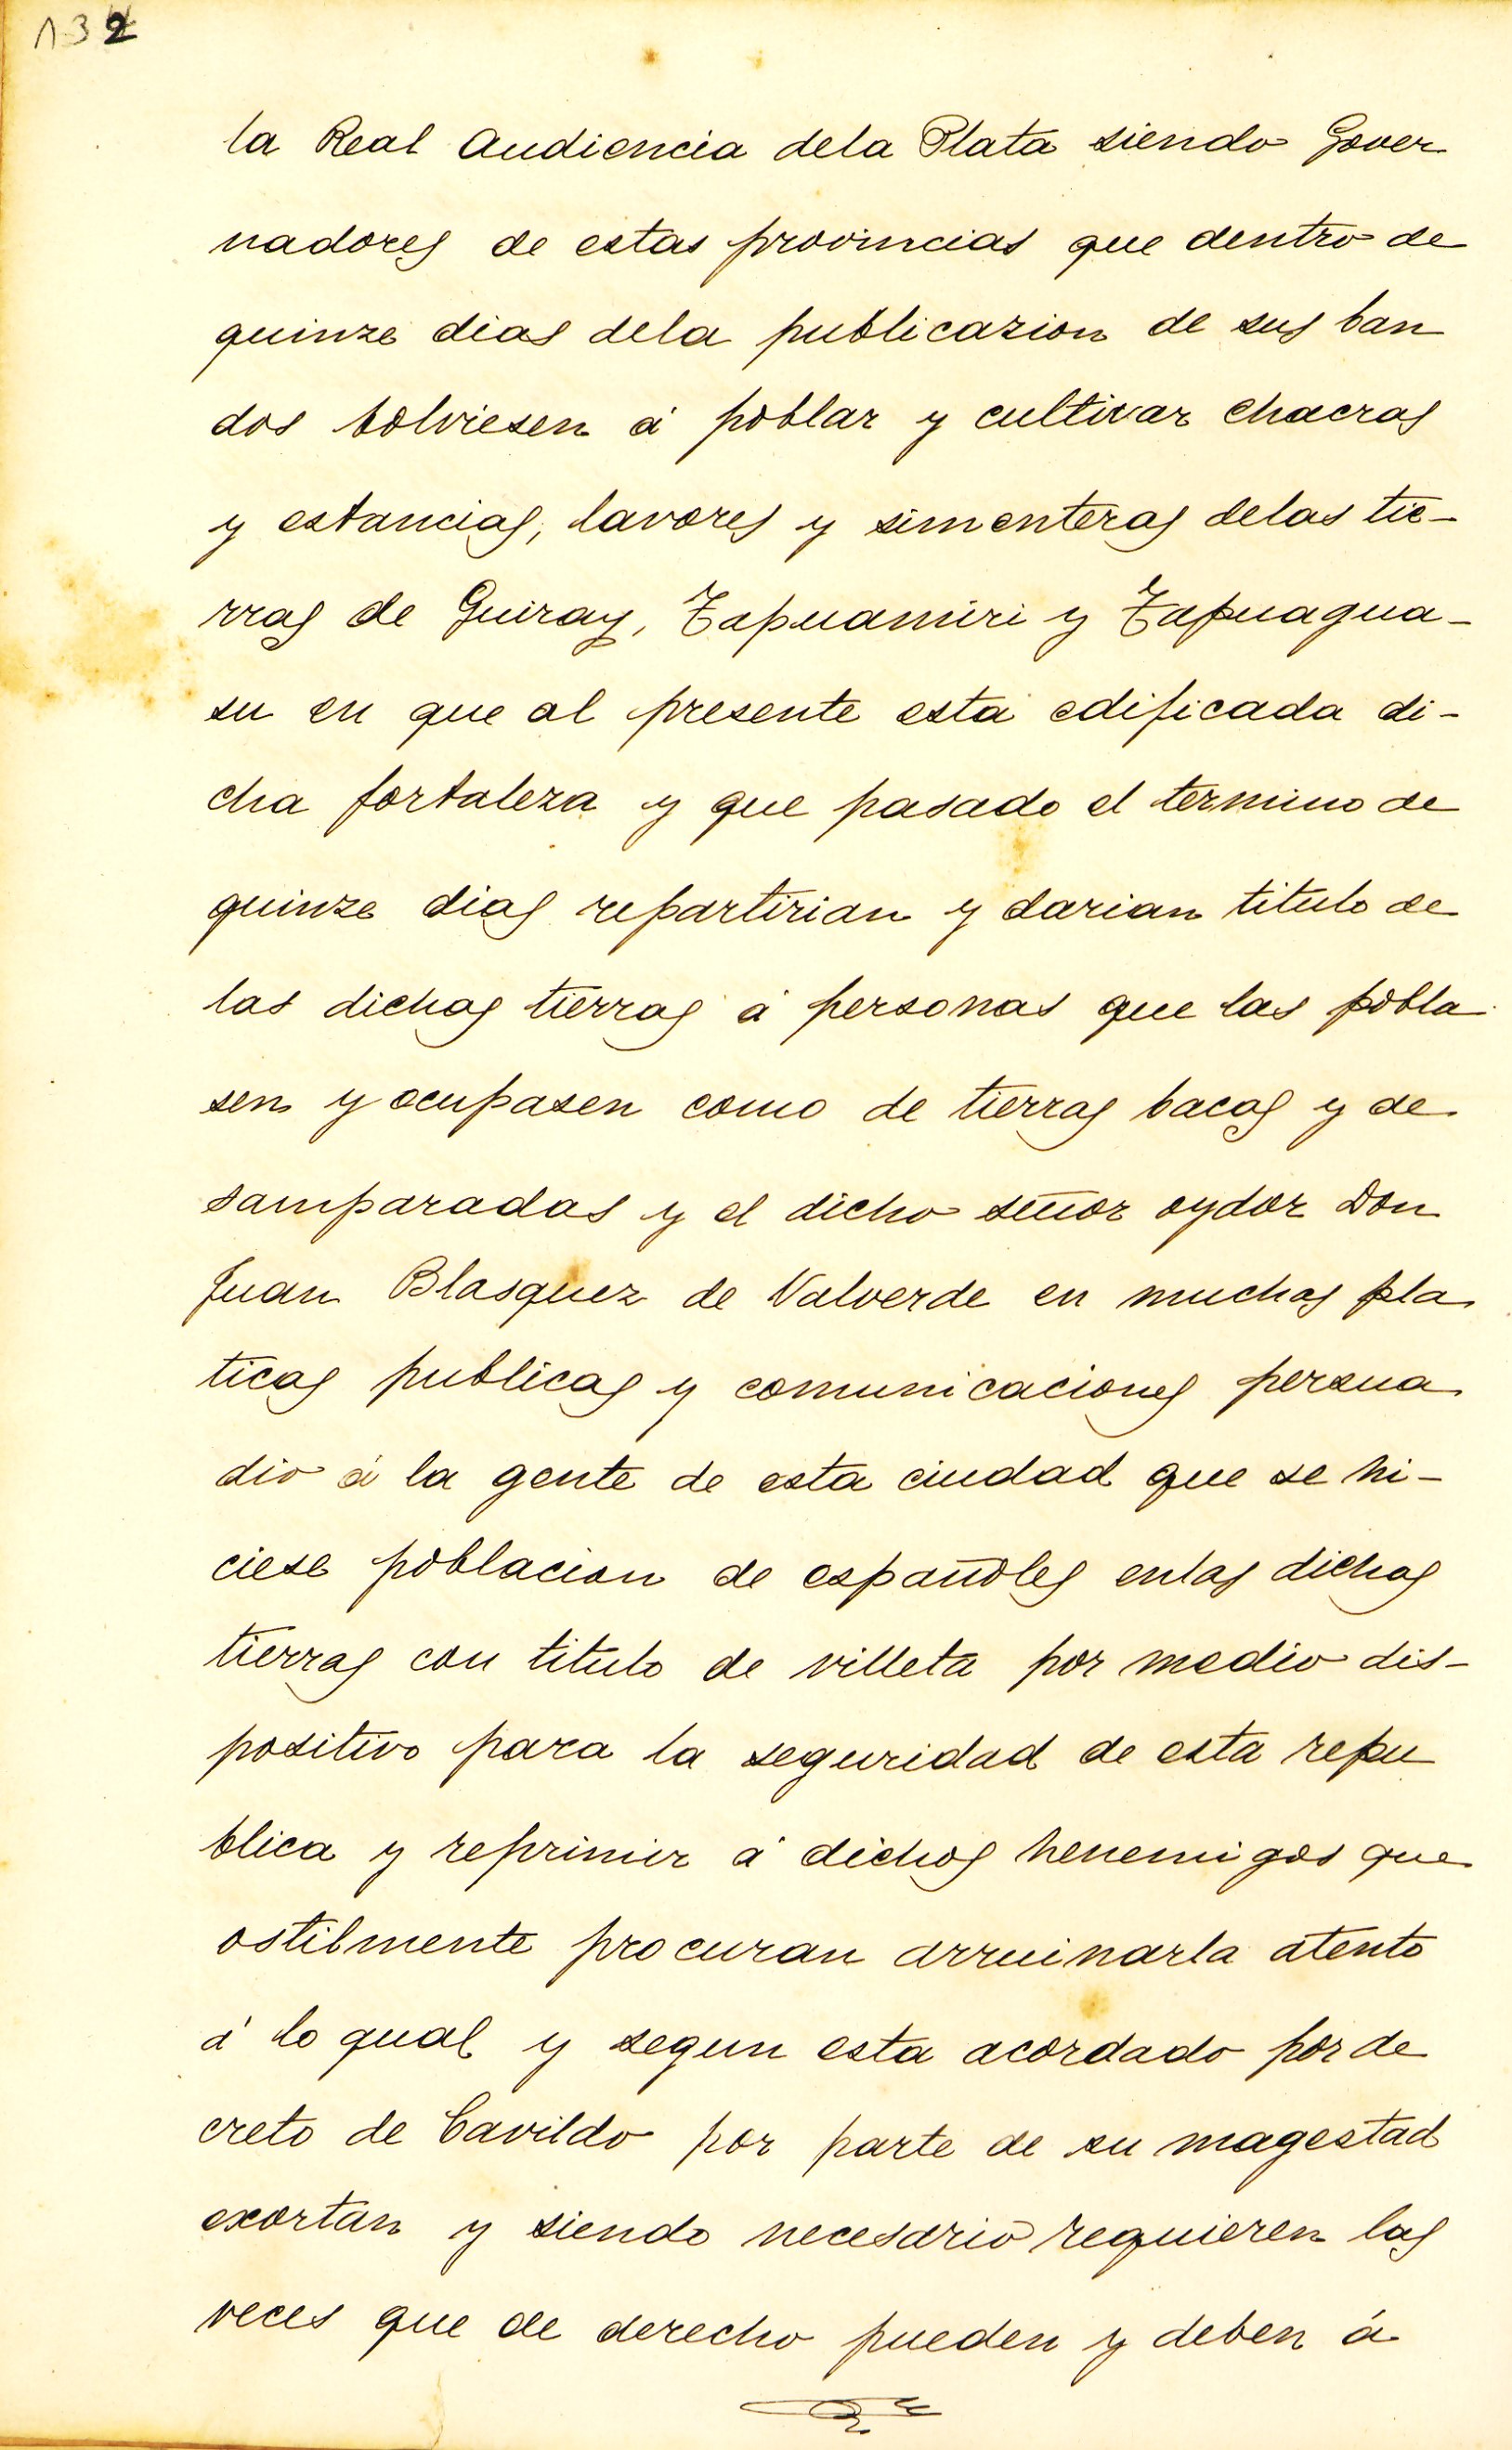 132
la Real Audiencia dela Plata siendo Gover
nadores de estas provincias que dentro de
quinze dias dela publicazion de sus ban
dos bolviesen á poblar y cultivar chacras
y estancias, lavores y simenteras delas tie-
rras de Guiray, Tapuamiri y Tapuagua-
su en que al presente está edificada di-
cha fortaleza y que pasado el termino de
quinze dias repartirian y darian titulo de
las dichas tierras á personas que las pobla
sen y ocupasen como de tierras bacas y de
samparadas y el dicho señor oydor Don
Juan Blasquez de Valverde en muchas pla
ticas publicas y comunicaciones persua
dio á la gente de esta ciudad que se hi-
ciese poblacion de españoles enlas dichas
tierras con titulo de villeta por medio dis-
positivo para la seguridad de esta repu
blica y reprimir á dichos henemigos que
ostilmente procuran arruinarla atento
á lo qual y segun esta acordado por de
creto de Cavildo por parte de su magestad
exortan y siendo necesario requieren las
veces que de derecho pueden y deben á